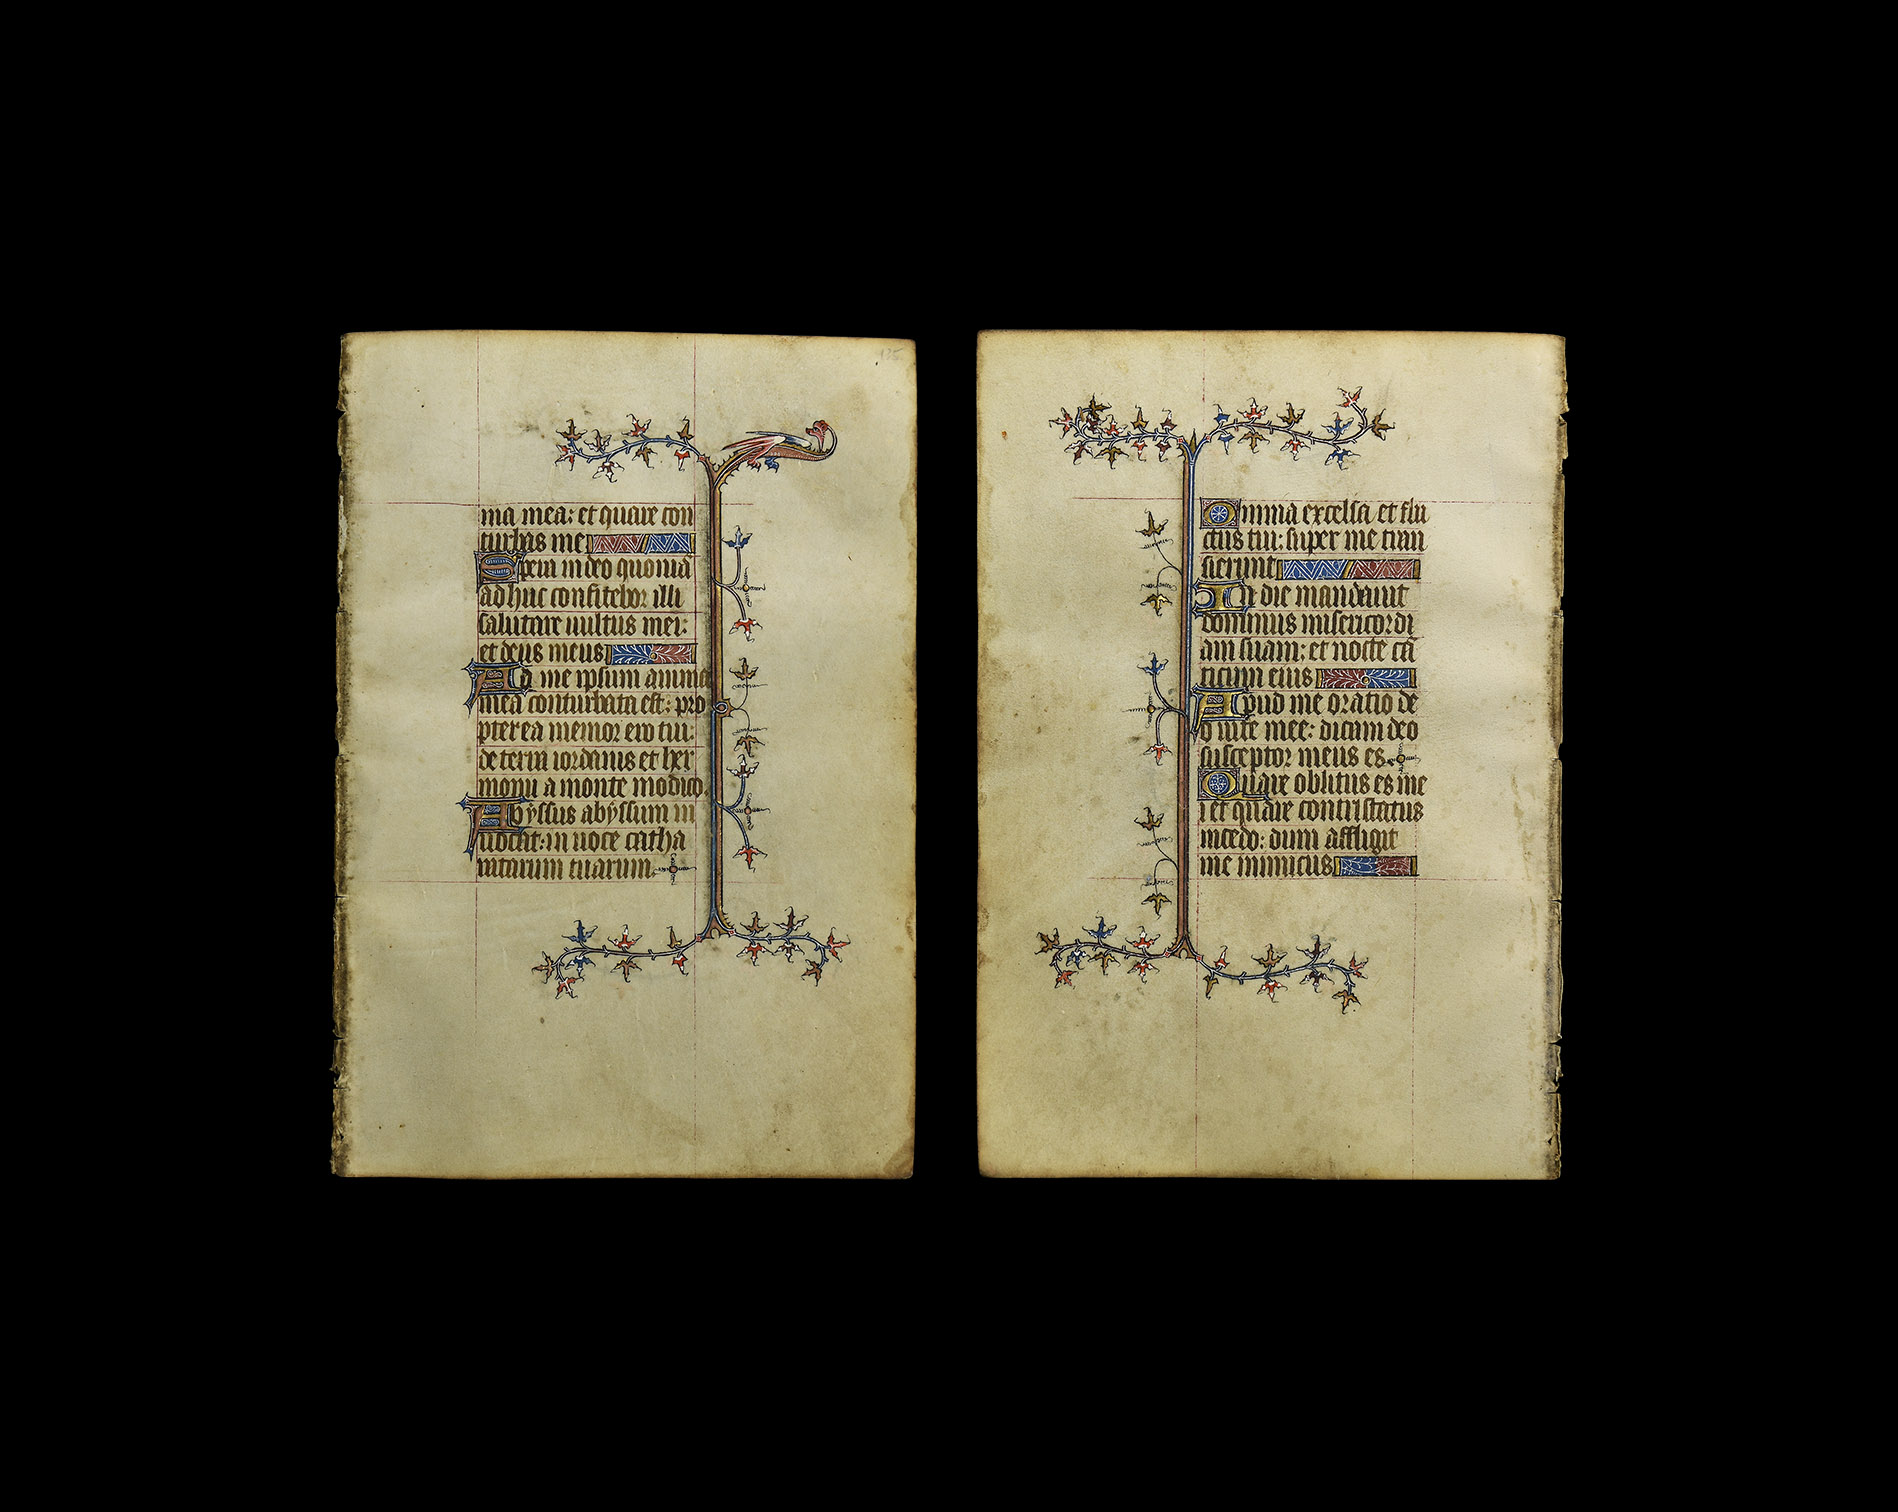 135
ma mea: et quare con
turbas me
Spera in deo quoniā
adhuc confitebor illi
salutare uultus mei:
et deus meus
Ad me ipsum anima
mea conturbata est: pro
pterea memor ero tui:
de terra iordanis et her
monii a monte modico.
Abyssus abyssum in
uocat: in uoce catha
ractarum tuarum.
Omnia excelsa et flu
ctus tui: super me tran
sierunt
In die mandauit
dominus misericordi
am suam: et nocte cā
ticum eius
Apud me oratio de
o uite mee: dicam deo
susceptor meus es.
Quare oblitus es me
i et quare contristatus
incedo: dum affligit
me inimicus